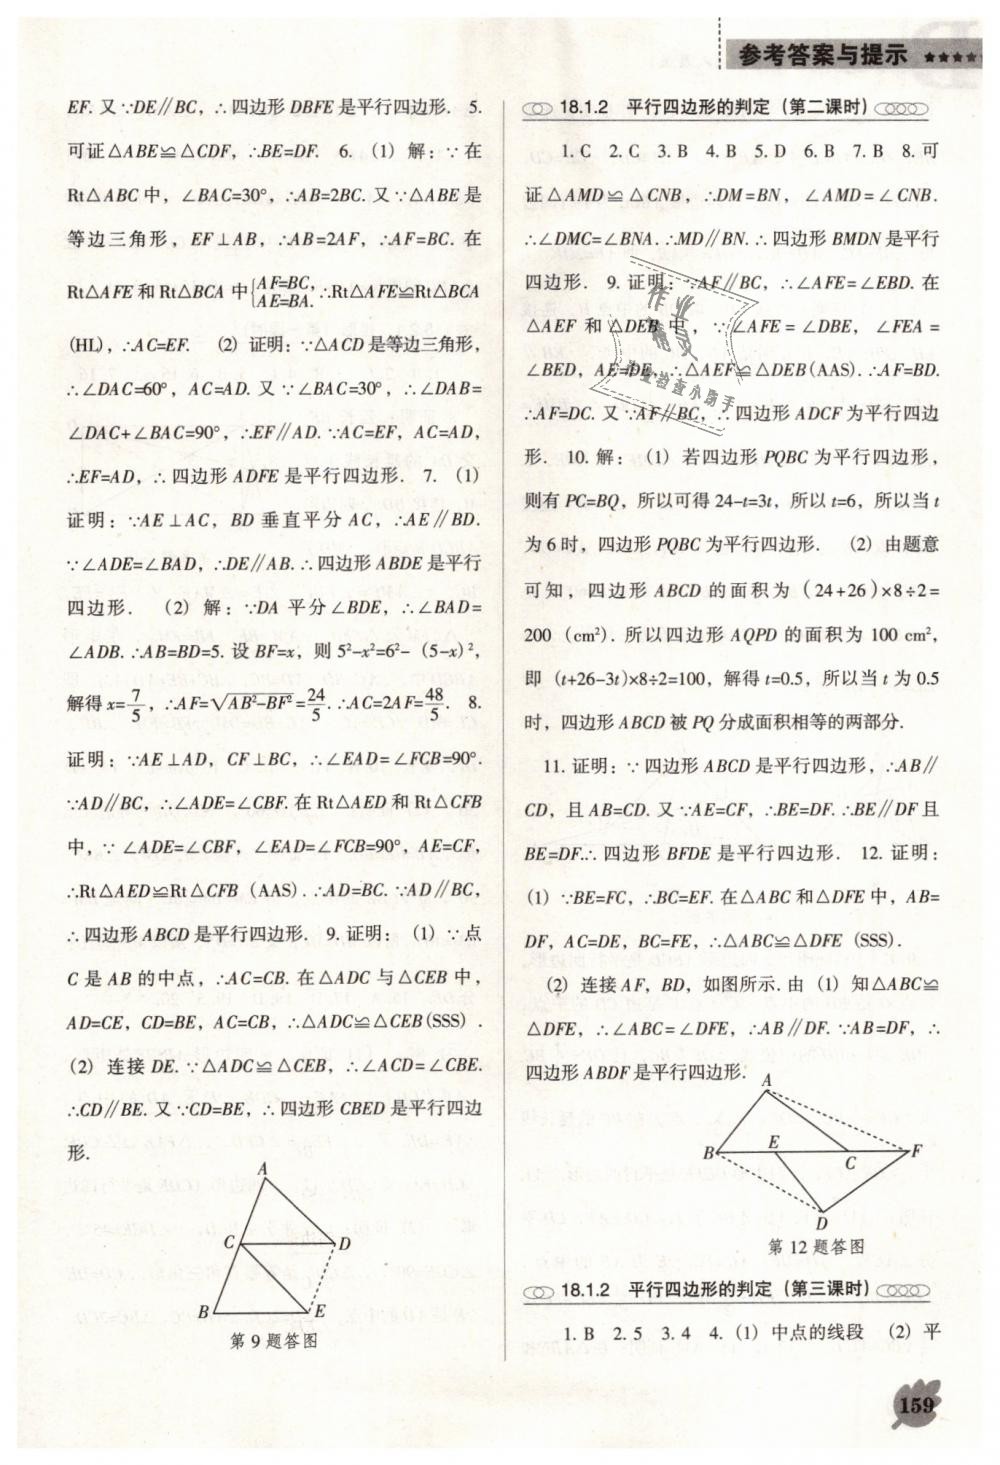 参考答案与提示 ★★★★★
EF. 又∵DE∥BC，∴四边形 DBFE 是平行四边形. 5.
可证△ABE≌△CDF，∴BE=DF. 6.（1）解：∵在
Rt△ABC 中，∠BAC=30°，∴AB=2BC. 又∵△ABE 是
等边三角形，EF⊥AB，∴AB=2AF，∴AF=BC. 在
Rt△AFE 和 Rt△BCA 中{AF=BC, AE=BA. ∴Rt△AFE≌Rt△BCA
(HL)，∴AC=EF. （2）证明：∵△ACD 是等边三角形，
∴∠DAC=60°，AC=AD. 又∵∠BAC=30°，∴∠DAB=
∠DAC+∠BAC=90°，∴EF∥AD. ∵AC=EF，AC=AD，
∴EF=AD，∴四边形 ADFE 是平行四边形. 7.（1）
证明：∵AE⊥AC，BD 垂直平分 AC，∴AE∥BD.
∵∠ADE=∠BAD，∴DE∥AB. ∴四边形 ABDE 是平行
四边形. （2）解：∵DA 平分∠BDE，∴∠BAD=
∠ADB. ∴AB=BD=5. 设 BF=x，则 5²-x²=6²-（5-x）²，
解得 x=7/5，∴AF=√(AB²-BF²)=24/5. ∴AC=2AF=48/5. 8.
证明：∵AE⊥AD，CF⊥BC，∴∠EAD=∠FCB=90°.
∵AD∥BC，∴∠ADE=∠CBF. 在 Rt△AED 和 Rt△CFB
中，∵∠ADE=∠CBF，∠EAD=∠FCB=90°，AE=CF，
∴Rt△AED≌Rt△CFB（AAS）. ∴AD=BC. ∵AD∥BC，
∴四边形 ABCD 是平行四边形. 9.证明：（1）∵点
C 是 AB 的中点，∴AC=CB. 在△ADC 与△CEB 中，
AD=CE，CD=BE，AC=CB，∴△ADC≌△CEB(SSS）.
（2）连接 DE. ∵△ADC≌△CEB，∴∠ACD=∠CBE.
∴CD∥BE. 又∵CD=BE，∴四边形 CBED 是平行四边
形.
A
C D
B E
第 9 题答图
18.1.2 平行四边形的判定（第二课时）
1. C 2. C 3. B 4. B 5. D 6. B 7. B 8. 可
证△AMD≌△CNB，∴DM=BN，∠AMD=∠CNB.
∴∠DMC=∠BNA. ∴MD∥BN. ∴四边形 BMDN 是平行
四边形. 9. 证明：∵AF∥BC，∴∠AFE=∠EBD. 在
△AEF 和△DEB 中，∵∠AFE=∠DBE，∠FEA=
∠BED，AE=DE，∴△AEF≌△DEB(AAS). ∴AF=BD.
∴AF=DC. 又∵AF∥BC，∴四边形 ADCF 为平行四边
形. 10. 解：（1）若四边形 PQBC 为平行四边形，
则有 PC=BQ，所以可得 24-t=3t，所以 t=6，所以当 t
为 6 时，四边形 PQBC 为平行四边形. （2）由题意
可知，四边形 ABCD 的面积为（24+26）×8÷2=
200（cm²）. 所以四边形 AQPD 的面积为 100 cm²，
即（t+26-3t)×8÷2=100，解得 t=0.5，所以当 t 为 0.5
时，四边形 ABCD 被 PQ 分成面积相等的两部分.
11. 证明：∵四边形 ABCD 是平行四边形，∴AB∥
CD，且 AB=CD. 又∵AE=CF，∴BE=DF. ∴BE∥DF 且
BE=DF.∴四边形 BFDE 是平行四边形. 12. 证明：
（1）∵BE=FC，∴BC=EF. 在△ABC 和△DFE 中，AB=
DF，AC=DE，BC=FE，∴△ABC≌△DFE（SSS）.
（2）连接 AF，BD，如图所示. 由（1）知△ABC≌
△DFE，∴∠ABC=∠DFE，∴AB∥DF. ∵AB=DF，∴
四边形 ABDF 是平行四边形.
A
B E C F
D
第 12 题答图
18.1.2 平行四边形的判定（第三课时）
1. B 2. 5 3. 4 4.（1）中点的线段 （2）平
159
作业
精灵
作业检查小助手